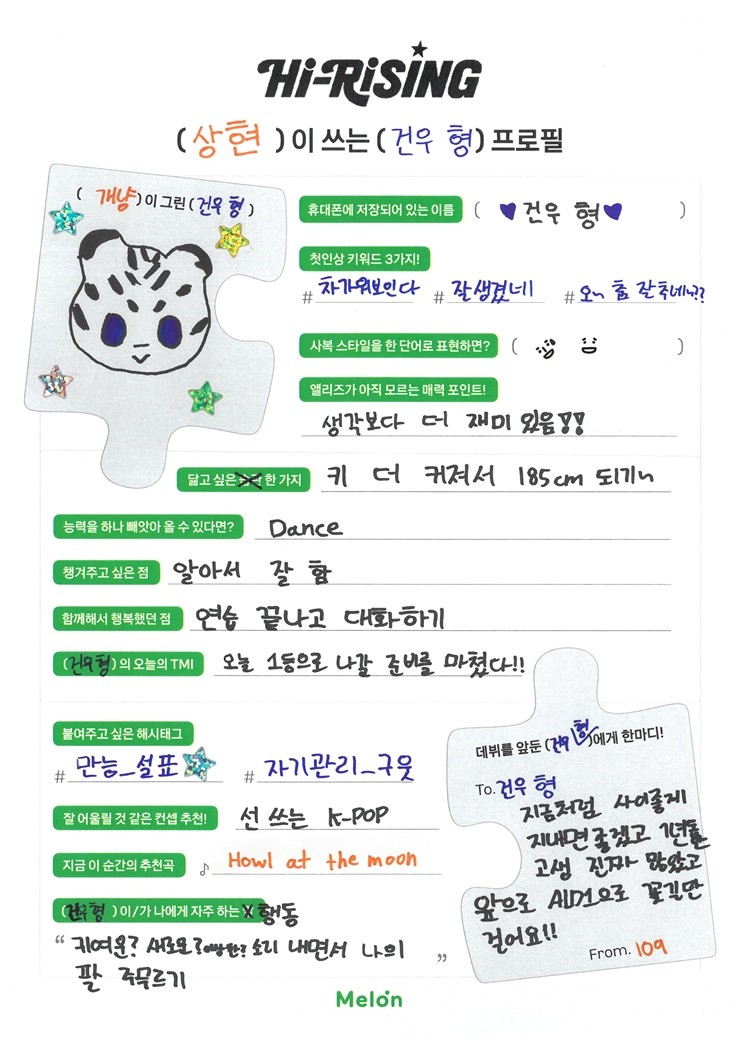 Hi-RiSiNG
(상현)이 쓰는 (건우 형) 프로필
(개냥)이 그린 (건우 형)
휴대폰에 저장되어 있는 이름 (♥건우 형♥)
첫인상 키워드 3가지!
# 차가워보인다 # 잘생겼네 # 오~ 춤 잘 추네~??
사복 스타일을 한 단어로 표현하면? ( )
앨리즈가 아직 모르는 매력 포인트!
생각보다 더 재미 있음!!
닮고 싶은 한 가지 키 더 커져서 185cm 되기~
능력을 하나 빼앗아 올 수 있다면? Dance
챙겨주고 싶은 점 알아서 잘 함
함께해서 행복했던 점 연습 끝나고 대화하기
(건우형)의 오늘의 TMI 오늘 1등으로 나갈 준비를 마쳤다!!
붙여주고 싶은 해시태그
# 만능_설표 # 자기관리_구웃
잘 어울릴 것 같은 컨셉 추천! 선 쓰는 K-POP
지금 이 순간의 추천곡 ♪ Howl at the moon
(건우형)이/가 나에게 자주 하는 행동
“ 키여운? 소리 내면서 나의 ”
팔 주무르기
데뷔를 앞둔 (건우 형)에게 한마디!
To. 건우 형
지금처럼 사이좋게
지내면 좋겠고 1년동안
고생 진짜 많았고
앞으로 AD1으로 꽃길만
걸어요!!
From. 109
Melon